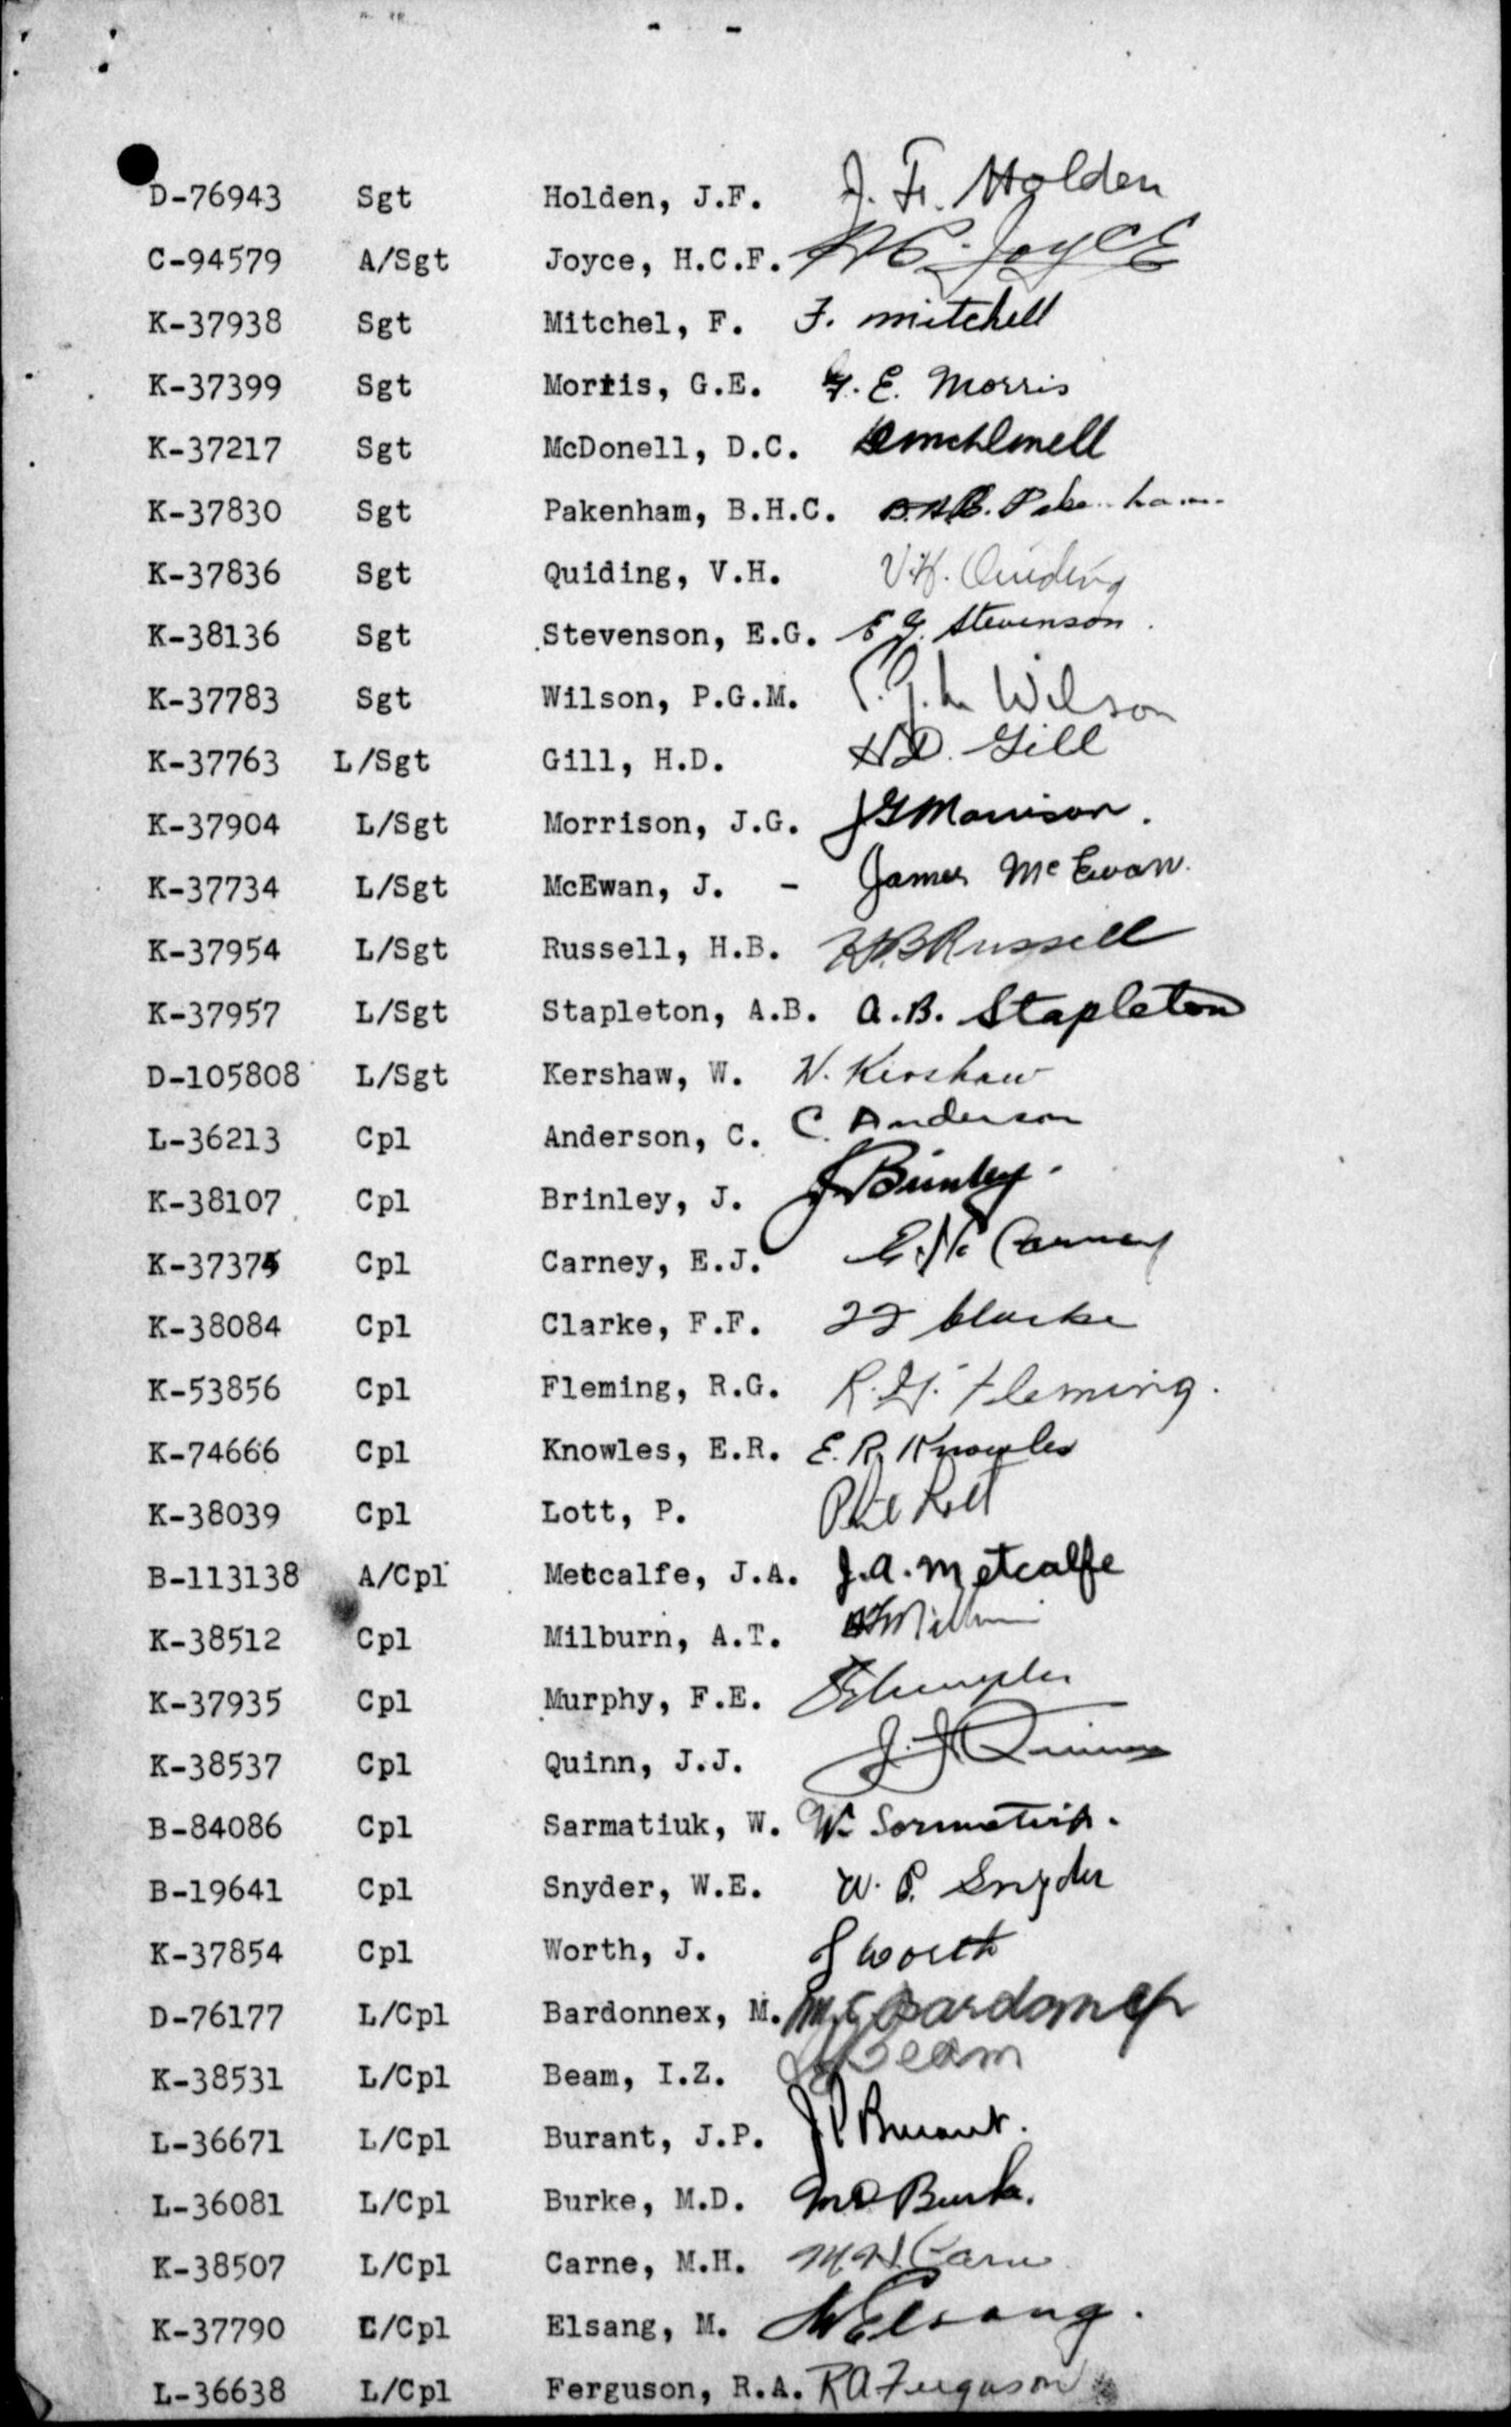 D-76943 Sgt Holden, J.F. J. F. Holden
C-94579 A/Sgt Joyce, H.C.F. H C. Joyce
K-37938 Sgt Mitchel, F. F. Mitchell
K-37399 Sgt Morris, G.E. G. E. Morris
K-37217 Sgt McDonell, D.C.
K-37830 Sgt Pakenham, B.H.C. B.H.C. Pakenham
K-37836 Sgt Quiding, V.H. V.H. Quiding
K-38136 Sgt Stevenson, E.G. E G. Stevenson
K-37783 Sgt Wilson, P.G.M. P.G.M Wilson
K-37763 L/Sgt Gill, H.D. H.D. Gill
K-37904 L/Sgt Morrison, J.G. J G Morrison.
K-37734 L/Sgt McEwan, J. - James McEwan.
K-37954 L/Sgt Russell, H.B. H.B Russell
K-37957 L/Sgt Stapleton, A.B. A.B. Stapleton
D-105808 L/Sgt Kershaw, W. W. Kershaw
L-36213 Cpl Anderson, C. C. Anderson
K-38107 Cpl Brinley, J. J Brinley.
K-37375 Cpl Carney, E.J. E. J. Carney
K-38084 Cpl Clarke, F.F. F F Clarke
K-53856 Cpl Fleming, R.G. R. G. Fleming.
K-74666 Cpl Knowles, E.R. E. R. Knowles
K-38039 Cpl Lott, P. Phil Lott
B-113138 A/Cpl Metcalfe, J.A. J.A. Metcalfe
K-38512 Cpl Milburn, A.T. A T Milburn
K-37935 Cpl Murphy, F.E. F E Murphy
K-38537 Cpl Quinn, J.J. J. J Quinn
B-84086 Cpl Sarmatiuk, W. W. Sarmatiuk.
B-19641 Cpl Snyder, W.E. W. E. Snyder
K-37854 Cpl Worth, J. J Worth
D-76177 L/Cpl Bardonnex, M. Bardonnex
K-38531 L/Cpl Beam, I.Z. Beam
L-36671 L/Cpl Burant, J.P. J P Burant.
L-36081 L/Cpl Burke, M.D. M D Burke.
K-38507 L/Cpl Carne, M.H. M H Carne
K-37790 L/Cpl Elsang, M. M Elsang.
L-36638 L/Cpl Ferguson, R.A. R A Ferguson